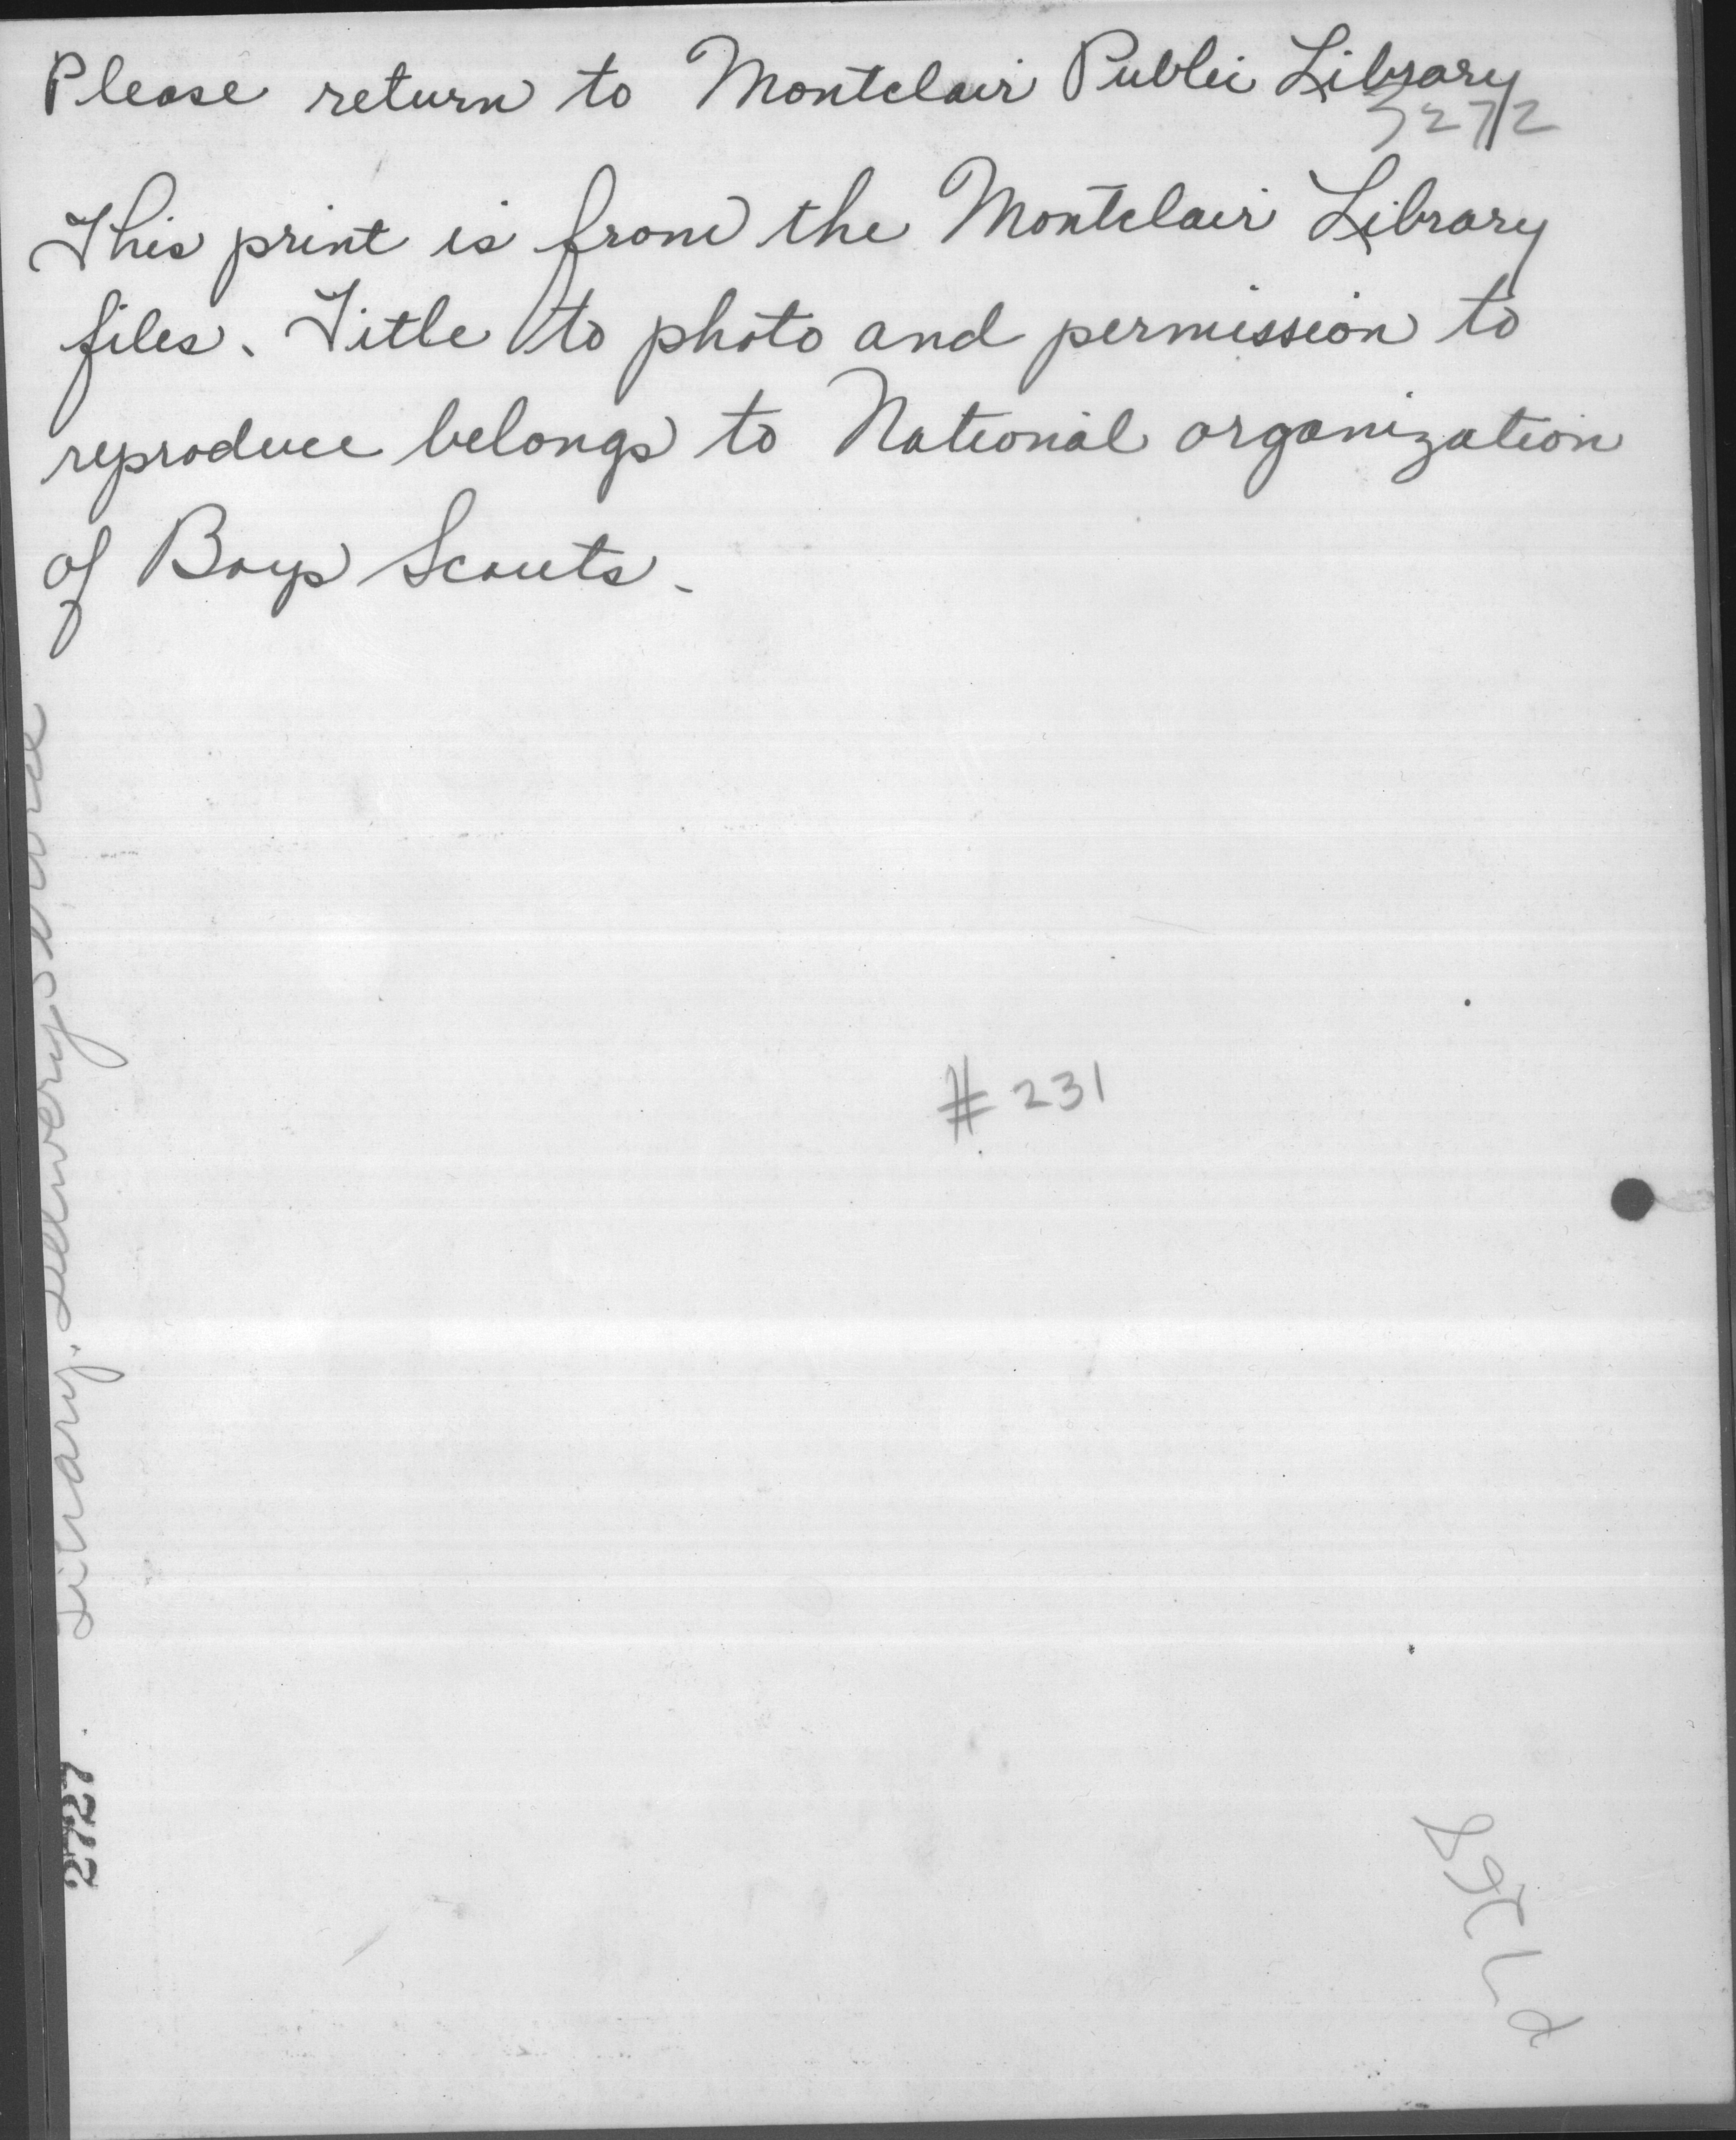 Please return to Montclair Public Library
This print is from the Montclair Library
files. Title to photo and permission to
reproduce belongs to National organization
of Boys Scouts.
# 231
Library. Delivery Service
2727